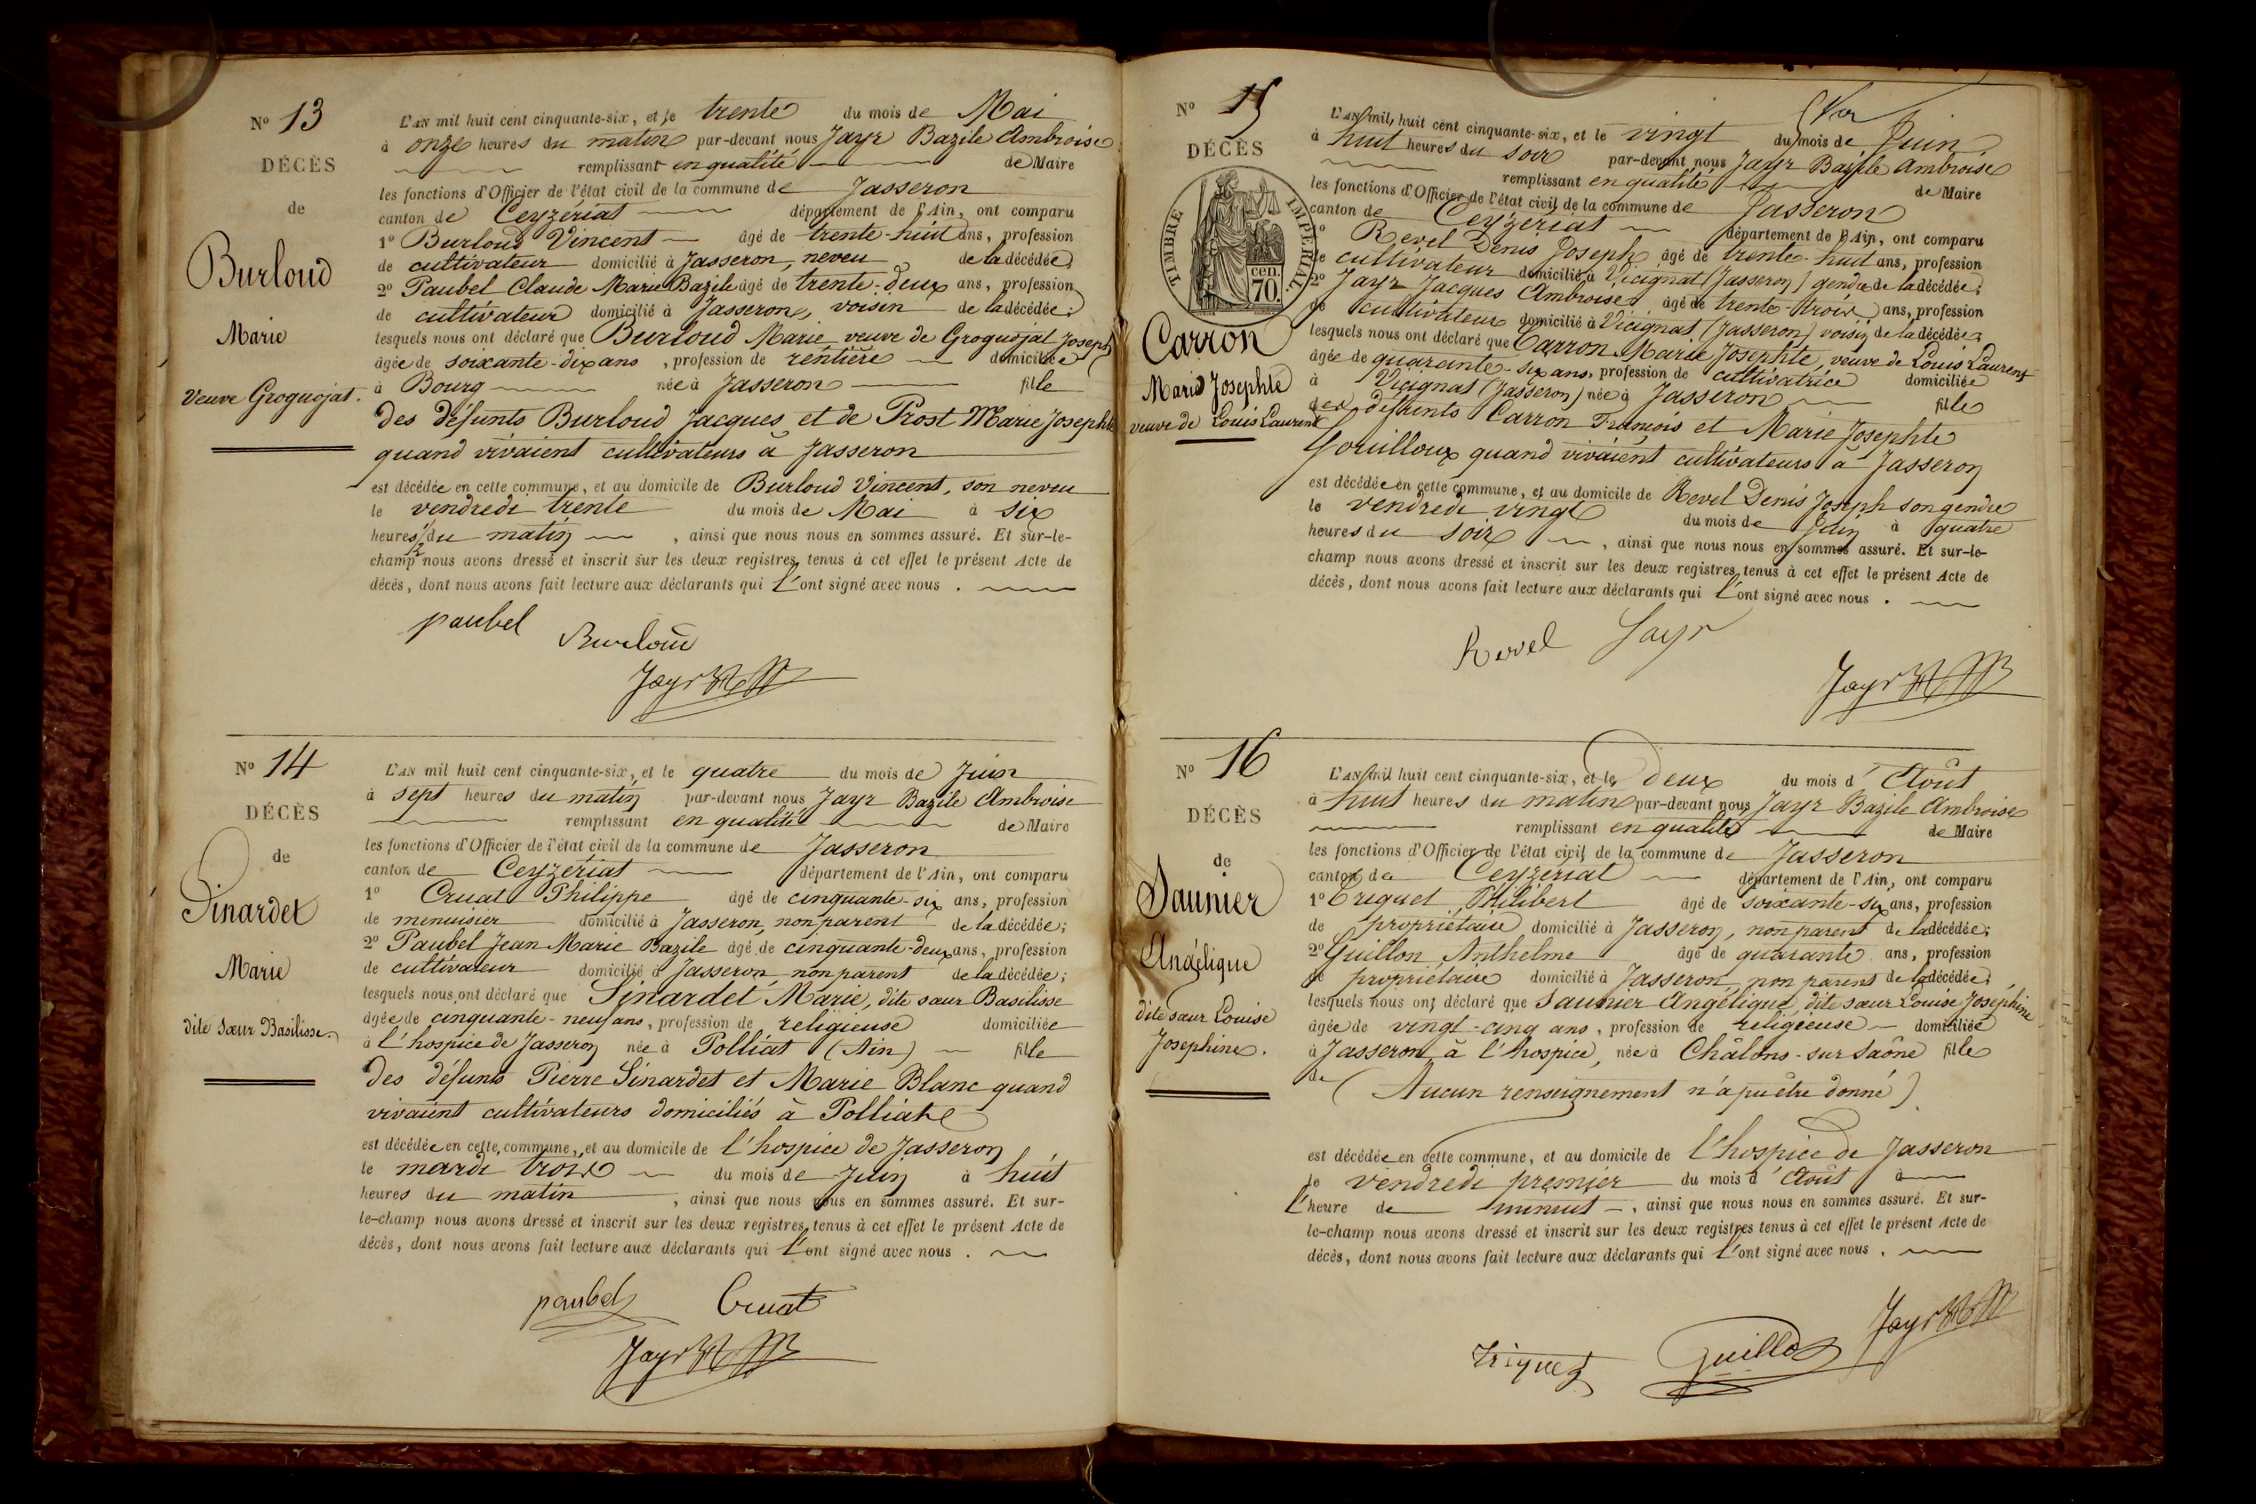 Nº 13
DÉCÈS
de
Burloud
Marie
Veuve Groguojat.
L'AN mil huit cent cinquante-six, et le trente du mois de Mai
à onze heures du matin par-devant nous Jayr Bazile Ambroise
remplissant en qualité de Maire
les fonctions d'Officier de l'état civil de la commune de Jasseron
canton de Ceyzériat département de l'Ain, ont comparu
1º Burloud Vincent âgé de trente-huit ans, profession
de cultivateur domicilié à Jasseron, neveu de la décédée;
2º Paubel Claude Marie Bazile âgé de trente-deux ans, profession
de cultivateur domicilié à Jasseron, voisin de la décédée;
lesquels nous ont déclaré que Burloud Marie, veuve de Groguojat Joseph
âgée de soixante-dix ans, profession de rentière domiciliée
à Bourg née à Jasseron fille
des défunts Burloud Jacques et de Prost Marie Josephte
quand vivaient cultivateurs à Jasseron
est décédée en cette commune, et au domicile de Burloud Vincent, son neveu
le vendredi trente du mois de Mai à six
heures 1/2 du matin, ainsi que nous nous en sommes assuré. Et sur-le-
champ nous avons dressé et inscrit sur les deux registres tenus à cet effet le présent Acte de
décès, dont nous avons fait lecture aux déclarants qui l'ont signé avec nous.
paubel Burloud
Jayr
Nº 14
DÉCÈS
de
Sinardet
Marie
dite sœur Basilisse.
L'AN mil huit cent cinquante-six, et le quatre du mois de Juin
à sept heures du matin par-devant nous Jayr Bazile Ambroise
remplissant en qualité de Maire
les fonctions d'Officier de l'état civil de la commune de Jasseron
canton de Ceyzériat département de l'Ain, ont comparu
1º Cruat Philippe âgé de cinquante-six ans, profession
de menuisier domicilié à Jasseron, non parent de la décédée;
2º Paubel Jean Marie Bazile âgé de cinquante-deux ans, profession
de cultivateur domicilié à Jasseron, non parent de la décédée;
lesquels nous ont déclaré que Sinardet Marie, dite sœur Basilisse
âgée de cinquante-neuf ans, profession de religieuse domiciliée
à l'hospice de Jasseron née à Polliat (Ain) fille
des défunts Pierre Sinardet et Marie Blanc quand
vivaient cultivateurs domiciliés à Polliat
est décédée en cette commune, et au domicile de l'hospice de Jasseron
le mardi trois du mois de Juin à huit
heures du matin, ainsi que nous nous en sommes assuré. Et sur-
le-champ nous avons dressé et inscrit sur les deux registres tenus à cet effet le présent Acte de
décès, dont nous avons fait lecture aux déclarants qui l'ont signé avec nous.
paubel Cruat
Jayr
Nº 15
DÉCÈS
TIMBRE IMPÉRIAL.
cen.
70.
Carron
Marie Josephte
veuve de Louis Laurent
L'AN mil huit cent cinquante-six, et le vingt du mois de Juin
à huit heures du soir par-devant nous Jayr Bazile Ambroise
remplissant en qualité de Maire
les fonctions d'Officier de l'état civil de la commune de Jasseron
canton de Ceyzériat département de l'Ain, ont comparu
1º Revel Denis Joseph âgé de trente-huit ans, profession
de cultivateur domicilié à Vicignat (Jasseron) gendre de la décédée;
2º Jayr Jacques Ambroise âgé de trente-trois ans, profession
de cultivateur domicilié à Vicignat (Jasseron) voisin de la décédée;
lesquels nous ont déclaré que Carron Marie Josephte, veuve de Louis Laurent
âgée de quarante-six ans, profession de cultivatrice domiciliée
à Vicignat (Jasseron) née à Jasseron fille
des défunts Carron François et Marie Josephte
Gouilloux quand vivaient cultivateurs à Jasseron
est décédée en cette commune, et au domicile de Revel Denis Joseph son gendre
le vendredi vingt du mois de Juin à quatre
heures du soir, ainsi que nous nous en sommes assuré. Et sur-le-
champ nous avons dressé et inscrit sur les deux registres tenus à cet effet le présent Acte de
décès, dont nous avons fait lecture aux déclarants qui l'ont signé avec nous.
Revel Jayr
Jayr
Nº 16
DÉCÈS
de
Saunier
Angélique
dite sœur Louise
Josephine.
L'AN mil huit cent cinquante-six, et le deux du mois d'Août
à huit heures du matin par-devant nous Jayr Bazile Ambroise
remplissant en qualité de Maire
les fonctions d'Officier de l'état civil de la commune de Jasseron
canton de Ceyzériat département de l'Ain, ont comparu
1º Triquet Philibert âgé de soixante-six ans, profession
de propriétaire domicilié à Jasseron, non parent de la décédée;
2º Guillon Anthelme âgé de quarante ans, profession
de propriétaire domicilié à Jasseron, non parent de la décédée;
lesquels nous ont déclaré que Saunier Angélique, dite sœur Louise Joséphine
âgée de vingt-cinq ans, profession de religieuse domiciliée
à Jasseron, à l'hospice, née à Châlons-sur Saône fille
de (Aucun renseignement n'a pu être donné)
est décédée en cette commune, et au domicile de l'hospice de Jasseron
le vendredi premier du mois d'Août à
l'heure de minuit, ainsi que nous nous en sommes assuré. Et sur-
le-champ nous avons dressé et inscrit sur les deux registres tenus à cet effet le présent Acte de
décès, dont nous avons fait lecture aux déclarants qui l'ont signé avec nous.
Triquet Guillon Jayr